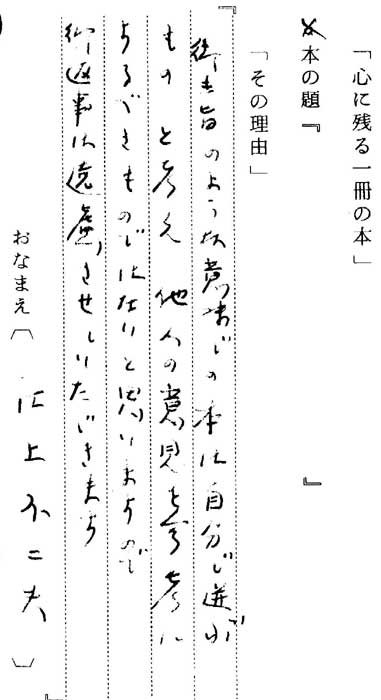 「心に残る一冊の本」
本の題『 』
「その理由」
『御主旨のような意味での本は自分で選ぶ
もの と考え 他人の意見を参考に
するべきものではないと思いますので
御返事は遠慮させていただきます
おなまえ〔江上不二夫〕